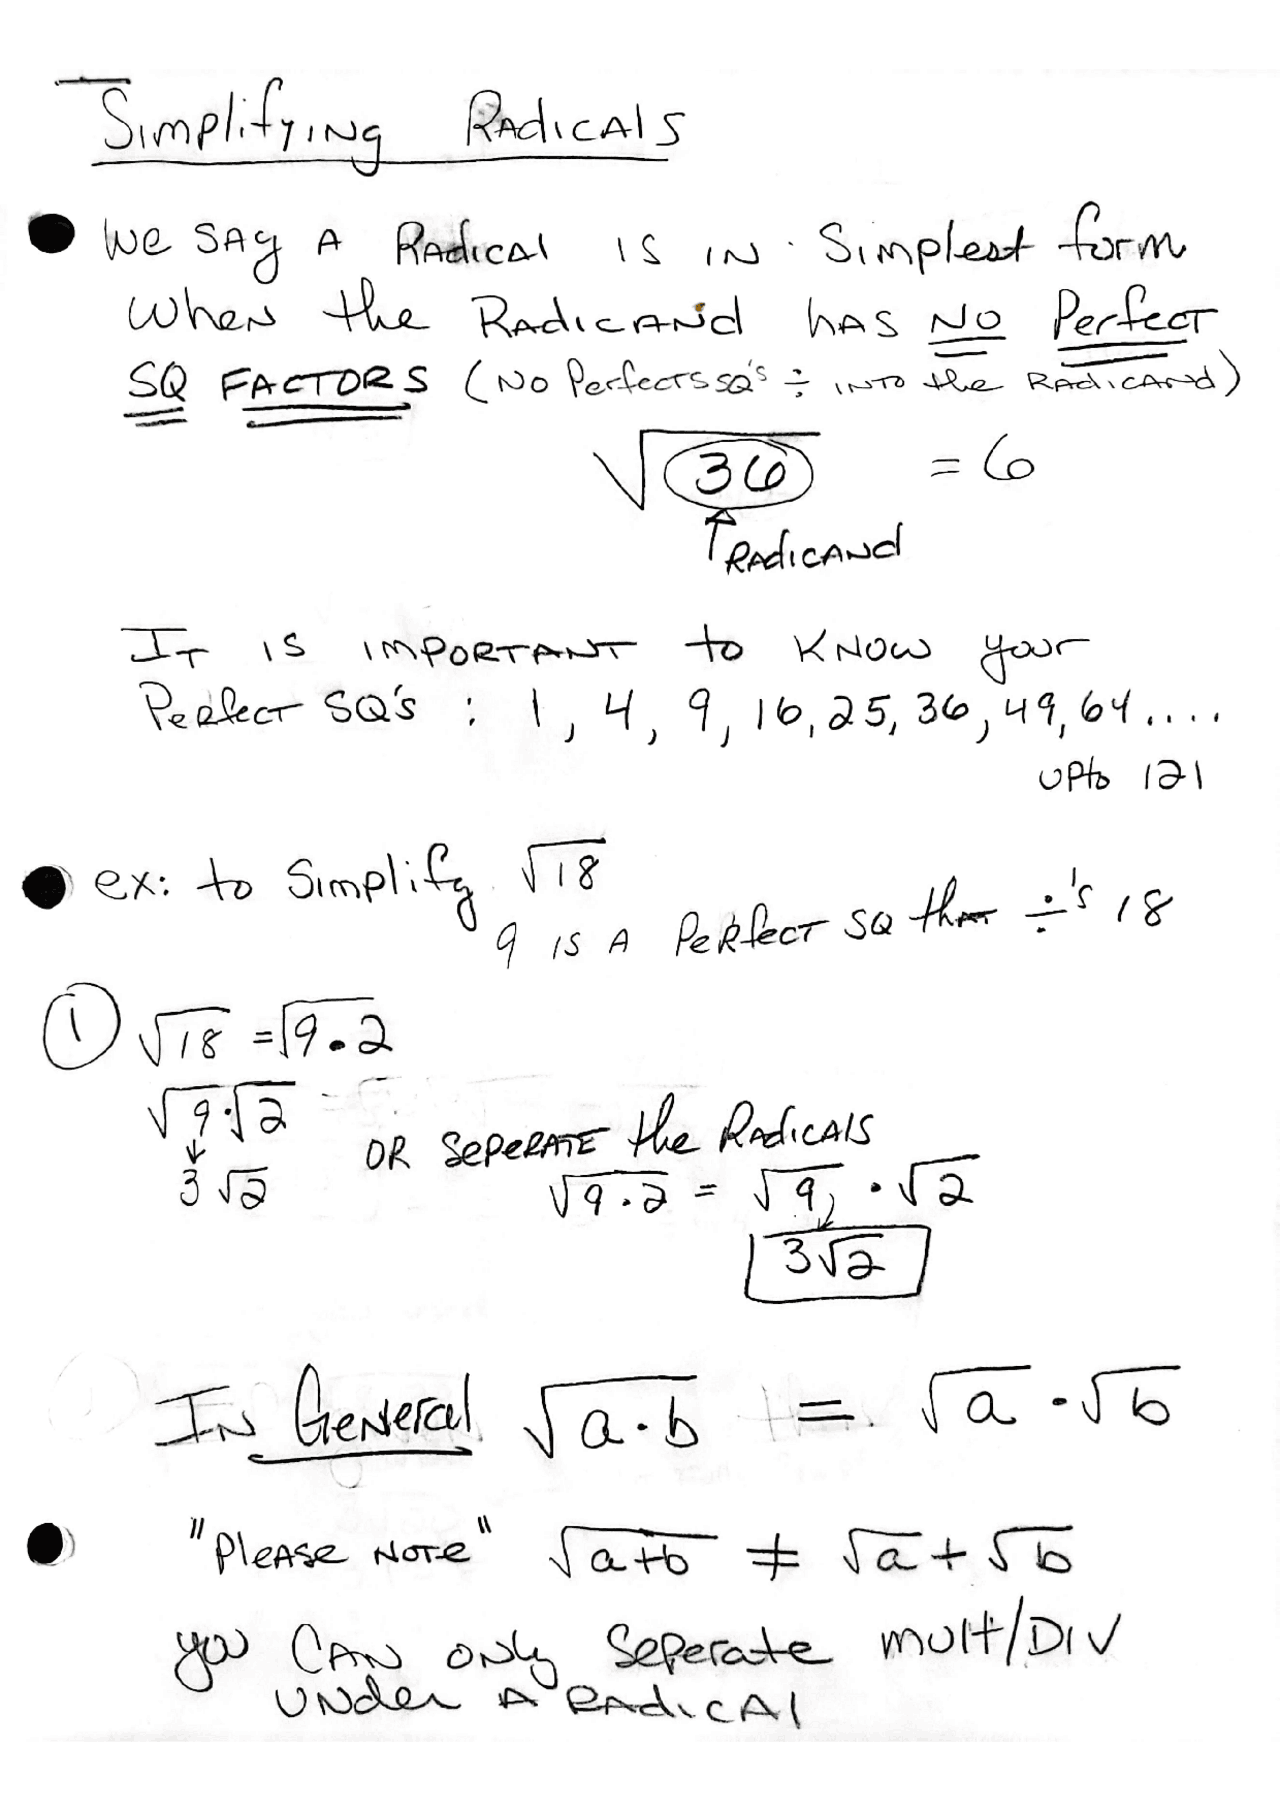 Simplifying Radicals
We say a Radical is in Simplest form
when the Radicand has NO Perfect
SQ FACTORS (No Perfects SQ's ÷ into the Radicand)
√36 = 6
↑ Radicand
It is important to know your
Perfect SQ's : 1, 4, 9, 16, 25, 36, 49, 64....
upto 121
ex: to Simplify √18
9 is a Perfect SQ that ÷'s 18
① √18 = √9·2
√9·√2
↓
3√2
OR SEPERATE the Radicals
√9·2 = √9 · √2
3√2
In General √a·b = √a · √b
"Please Note" √a+b ≠ √a + √b
you can only Seperate mult/DIV
under a Radical